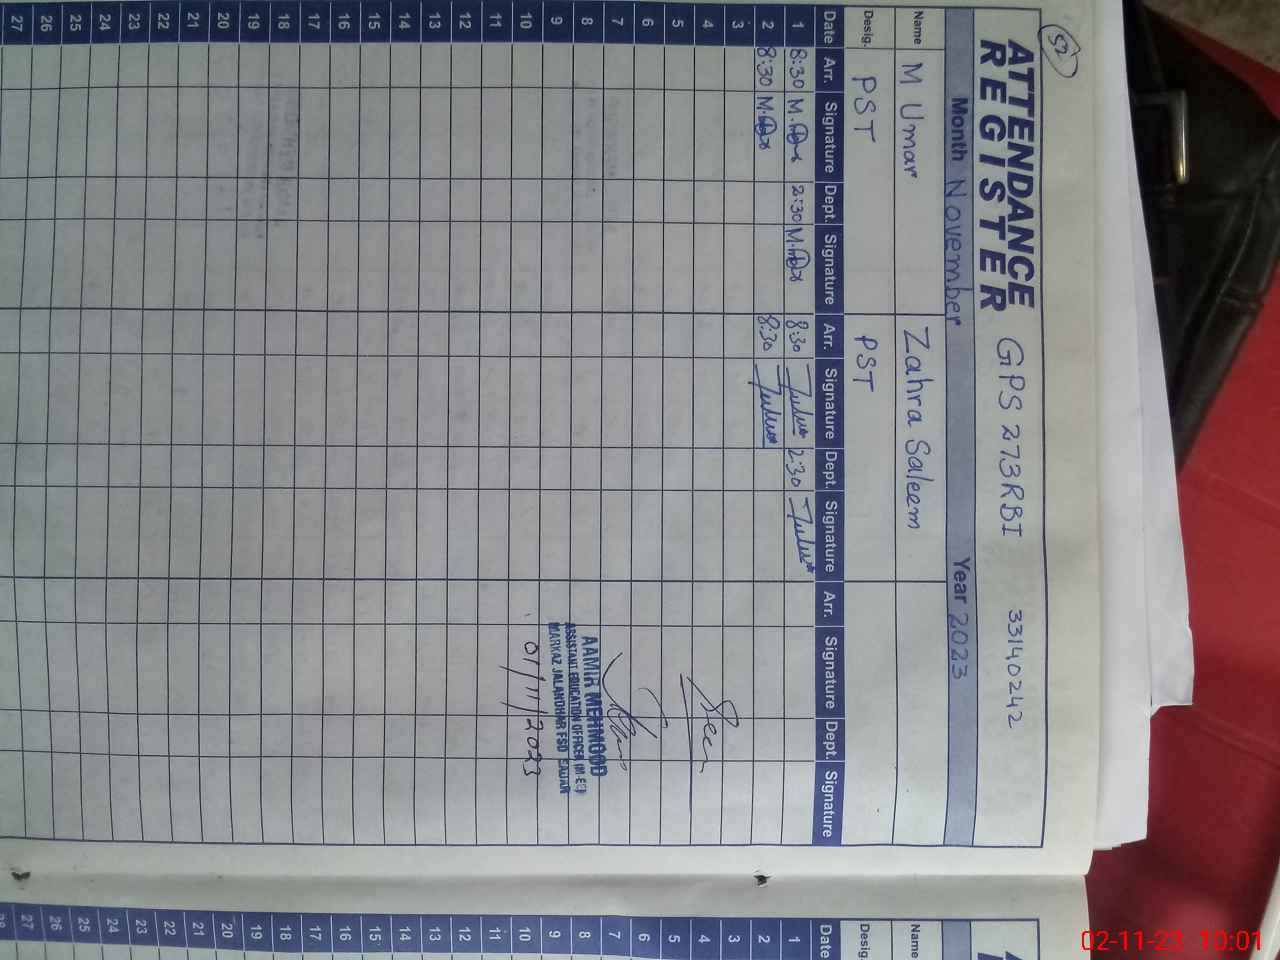 52
ATTENDANCE
REGISTER
GPS 273RBI 33140242
Month November Year 2023
Name M Umar Zahra Saleem
Desig. PST PST
Date Arr. Signature Dept. Signature Arr. Signature Dept. Signature Arr. Signature Dept. Signature
1 8:30 2:30 8:30 2:30
2 8:30 8:30
3
4
5
6
7
8
9
10
11
12
13
14
15
16
17
18
19
20
21
22
23
24
25
26
27
Seen
AAMIR MEHMOOD
ASSISTANT EDUCATION OFFICER (M-EE)
MARKAZ JALANDHAR FSD SADAR
01/11/2023
Name
Desig.
Date
1
2
3
4
5
6
7
8
9
10
11
12
13
14
15
16
17
18
19
20
21
22
23
24
25
26
27
02-11-23 10:01